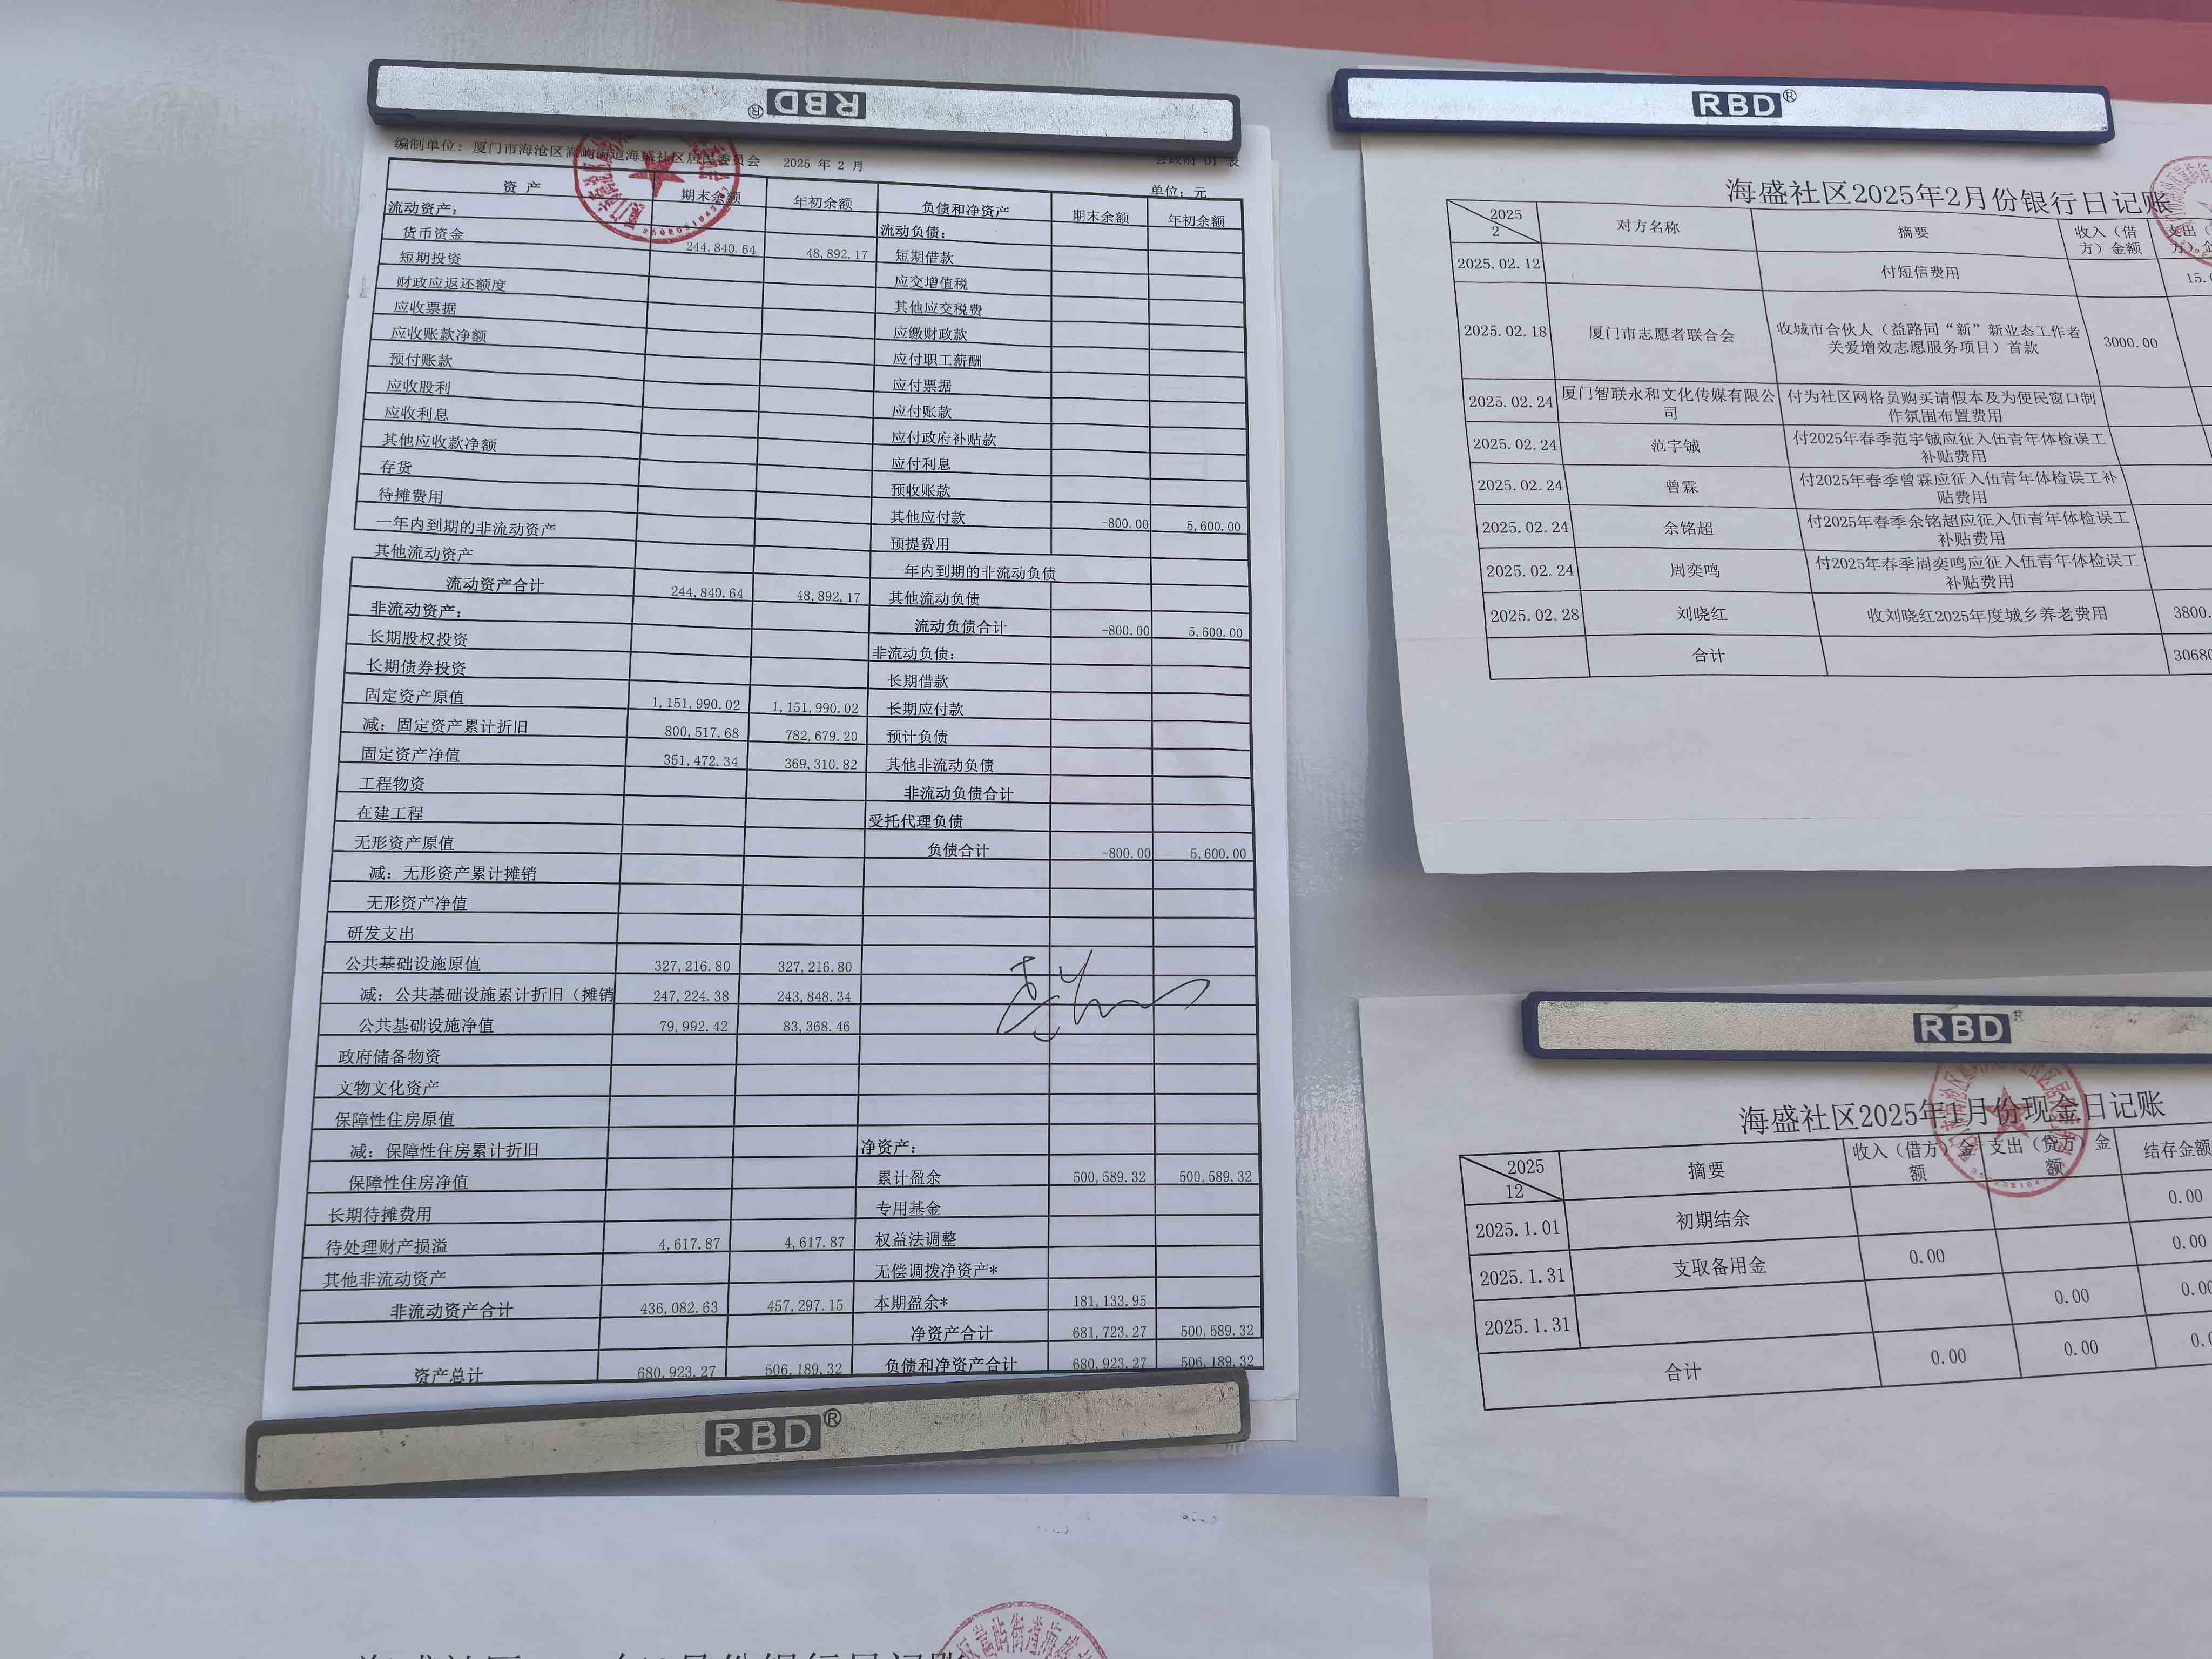 RBD®
编制单位：厦门市海沧区嵩屿街道海盛社区居民委员会 2025 年 2 月 会政财 01 表
单位：元
资 产 期末余额 年初余额 负债和净资产 期末余额 年初余额
流动资产： 流动负债：
货币资金 244,840.64 48,892.17 短期借款
短期投资 应交增值税
财政应返还额度 其他应交税费
应收票据 应缴财政款
应收账款净额 应付职工薪酬
预付账款 应付票据
应收股利 应付账款
应收利息 应付政府补贴款
其他应收款净额 应付利息
存货 预收账款
待摊费用 其他应付款 -800.00 5,600.00
一年内到期的非流动资产 预提费用
其他流动资产 一年内到期的非流动负债
流动资产合计 244,840.64 48,892.17 其他流动负债
非流动资产： 流动负债合计 -800.00 5,600.00
长期股权投资 非流动负债：
长期债券投资 长期借款
固定资产原值 1,151,990.02 1,151,990.02 长期应付款
减：固定资产累计折旧 800,517.68 782,679.20 预计负债
固定资产净值 351,472.34 369,310.82 其他非流动负债
工程物资 非流动负债合计
在建工程 受托代理负债
无形资产原值 负债合计 -800.00 5,600.00
减：无形资产累计摊销
无形资产净值
研发支出
公共基础设施原值 327,216.80 327,216.80
减：公共基础设施累计折旧（摊销 247,224.38 243,848.34
公共基础设施净值 79,992.42 83,368.46
政府储备物资
文物文化资产
保障性住房原值
减：保障性住房累计折旧 净资产：
保障性住房净值 累计盈余 500,589.32 500,589.32
长期待摊费用 专用基金
待处理财产损溢 4,617.87 4,617.87 权益法调整
其他非流动资产 无偿调拨净资产*
非流动资产合计 436,082.63 457,297.15 本期盈余* 181,133.95
净资产合计 681,723.27 500,589.32
资产总计 680,923.27 506,189.32 负债和净资产合计 680,923.27 506,189.32
RBD®
RBD®
海盛社区2025年2月份银行日记账
2025 2 对方名称 摘要 收入（借方）金额 支出（
2025.02.12 付短信费用 15.
2025.02.18 厦门市志愿者联合会 收城市合伙人（益路同“新”新业态工作者关爱增效志愿服务项目）首款 3000.00
2025.02.24 厦门智联永和文化传媒有限公司 付为社区网格员购买请假本及为便民窗口制作氛围布置费用
2025.02.24 范宇铖 付2025年春季范宇铖应征入伍青年体检误工补贴费用
2025.02.24 曾霖 付2025年春季曾霖应征入伍青年体检误工补贴费用
2025.02.24 余铭超 付2025年春季余铭超应征入伍青年体检误工补贴费用
2025.02.24 周奕鸣 付2025年春季周奕鸣应征入伍青年体检误工补贴费用
2025.02.28 刘晓红 收刘晓红2025年度城乡养老费用 3800.
合计 30680
RBD®
海盛社区2025年1月份现金日记账
2025 12 摘要 收入（借方）金额 支出（贷方）金额 结存金额
2025.1.01 初期结余 0.00
2025.1.31 支取备用金 0.00 0.00
2025.1.31 0.00 0.00
合计 0.00 0.00 0.